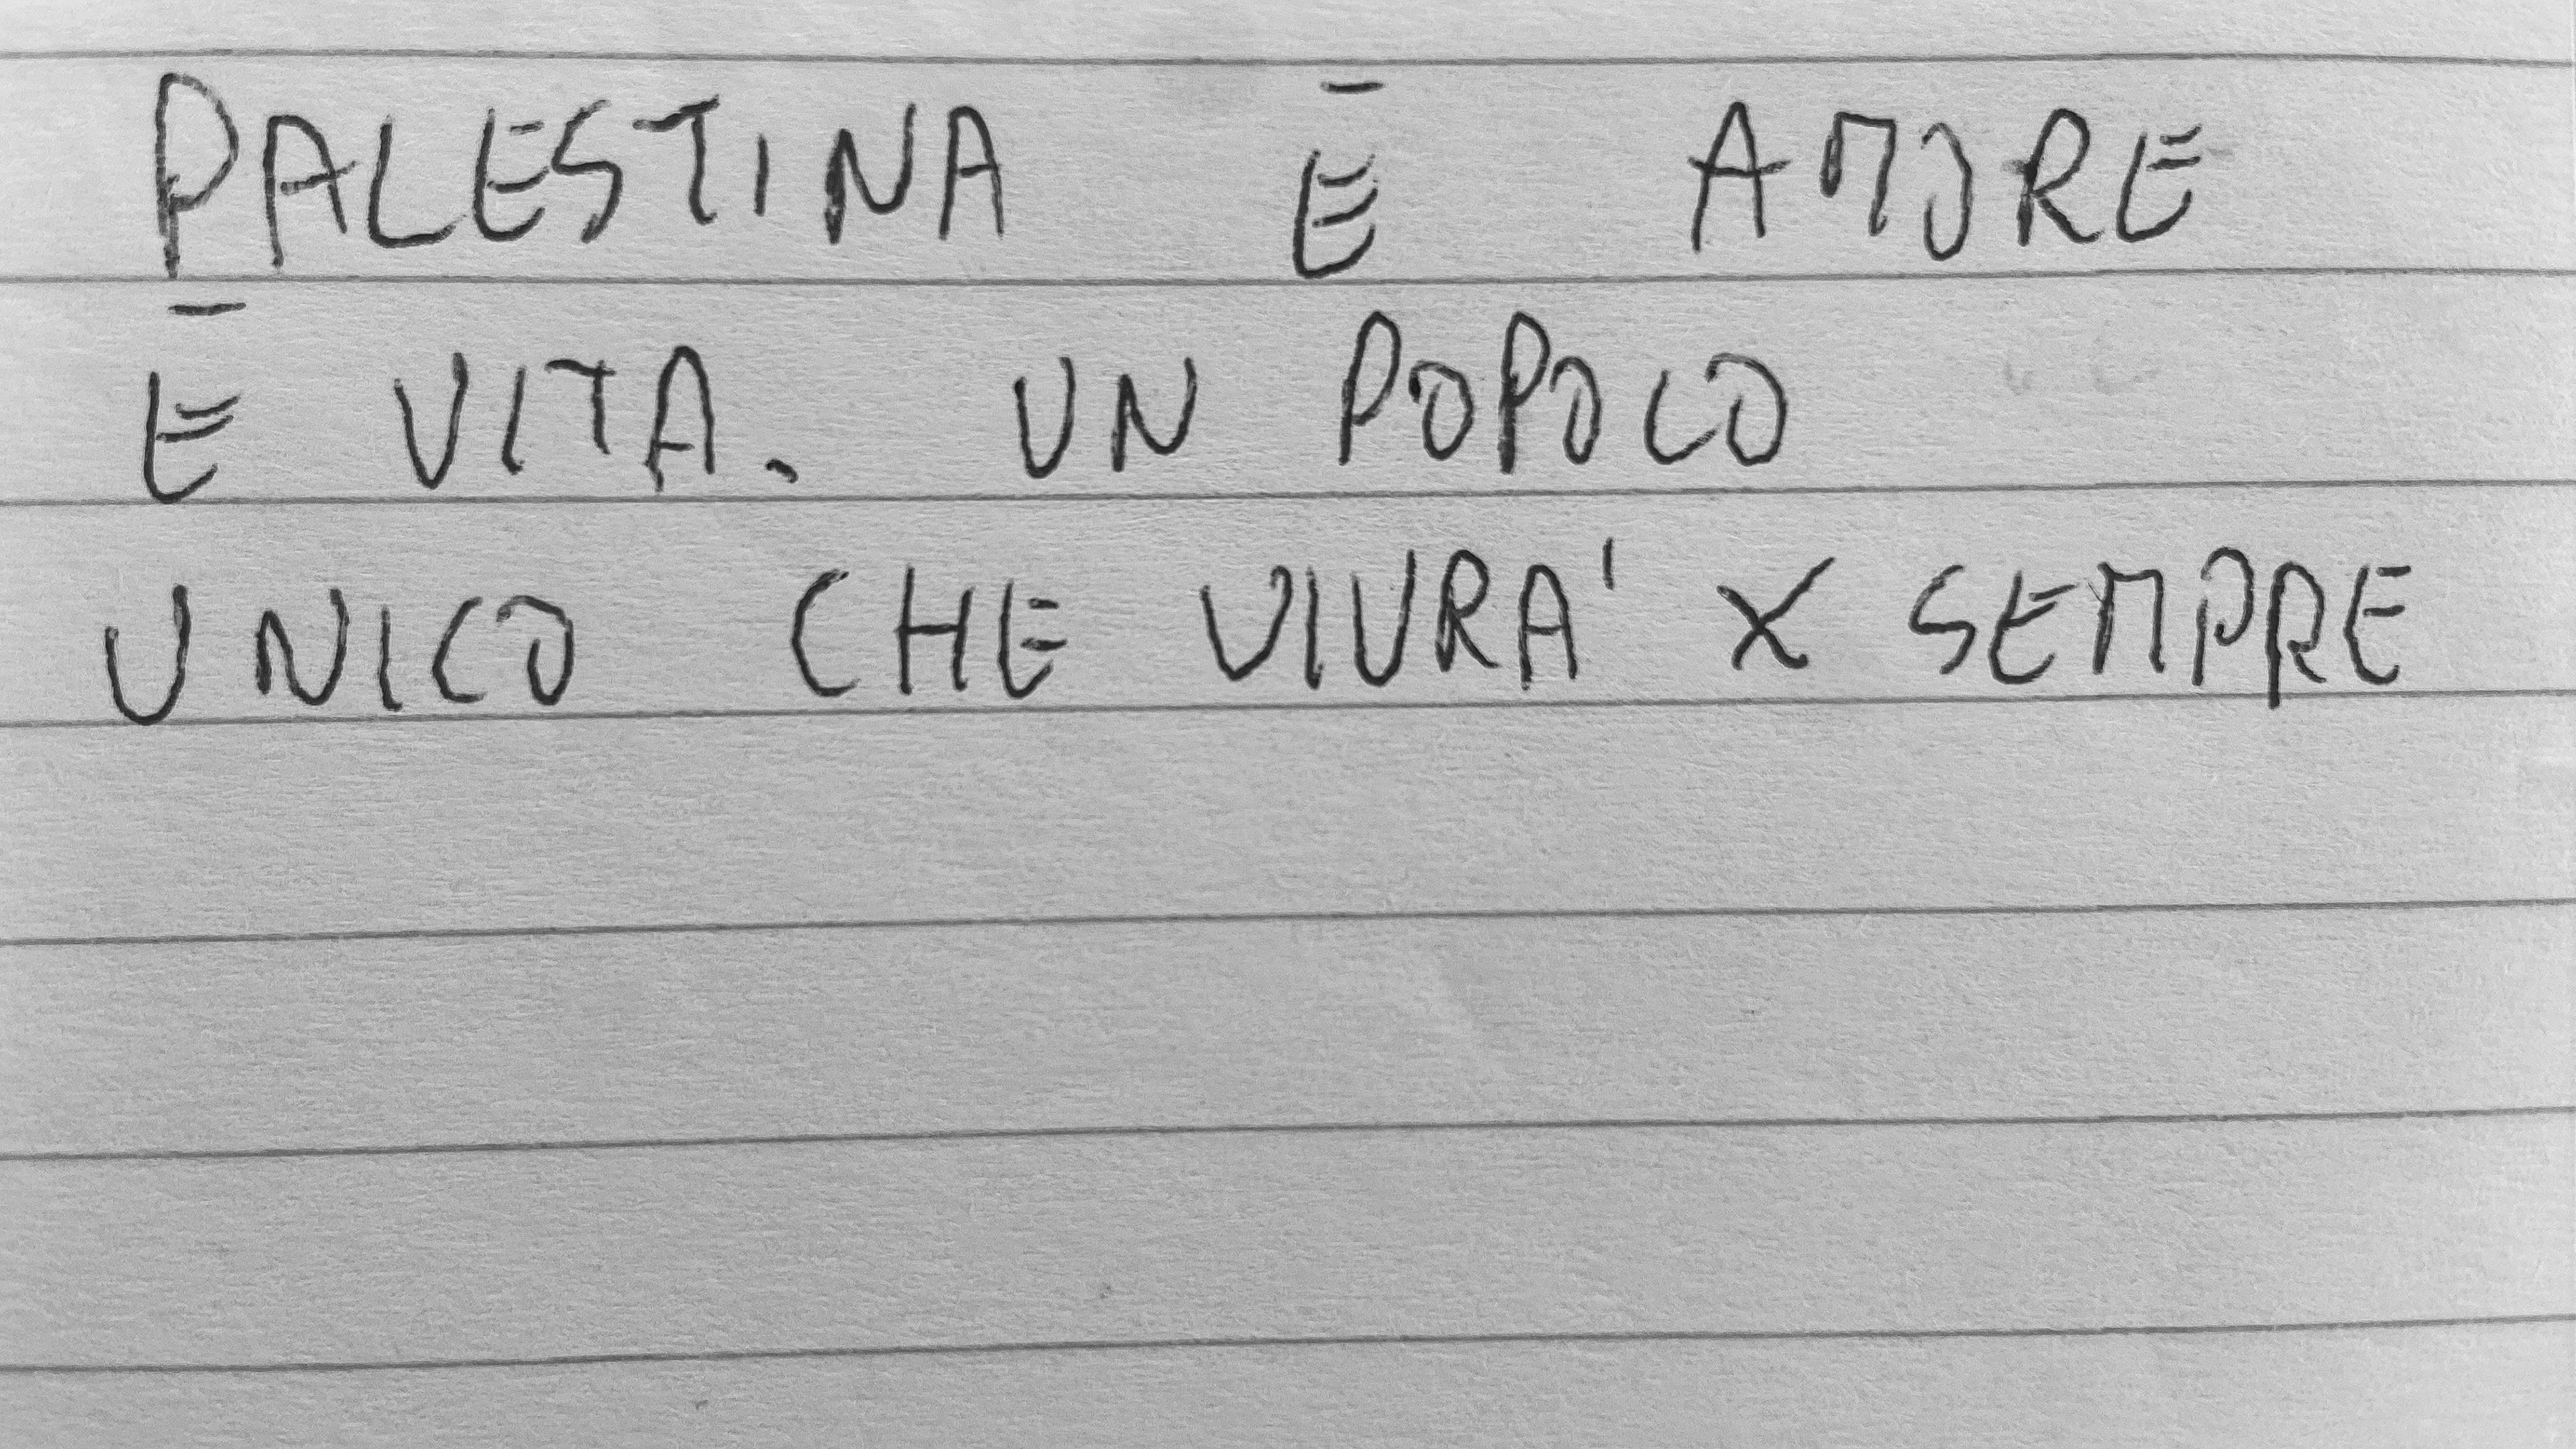 PALESTINA È AMORE
È VITA. UN POPOLO
UNICO CHE VIVRA' X SEMPRE